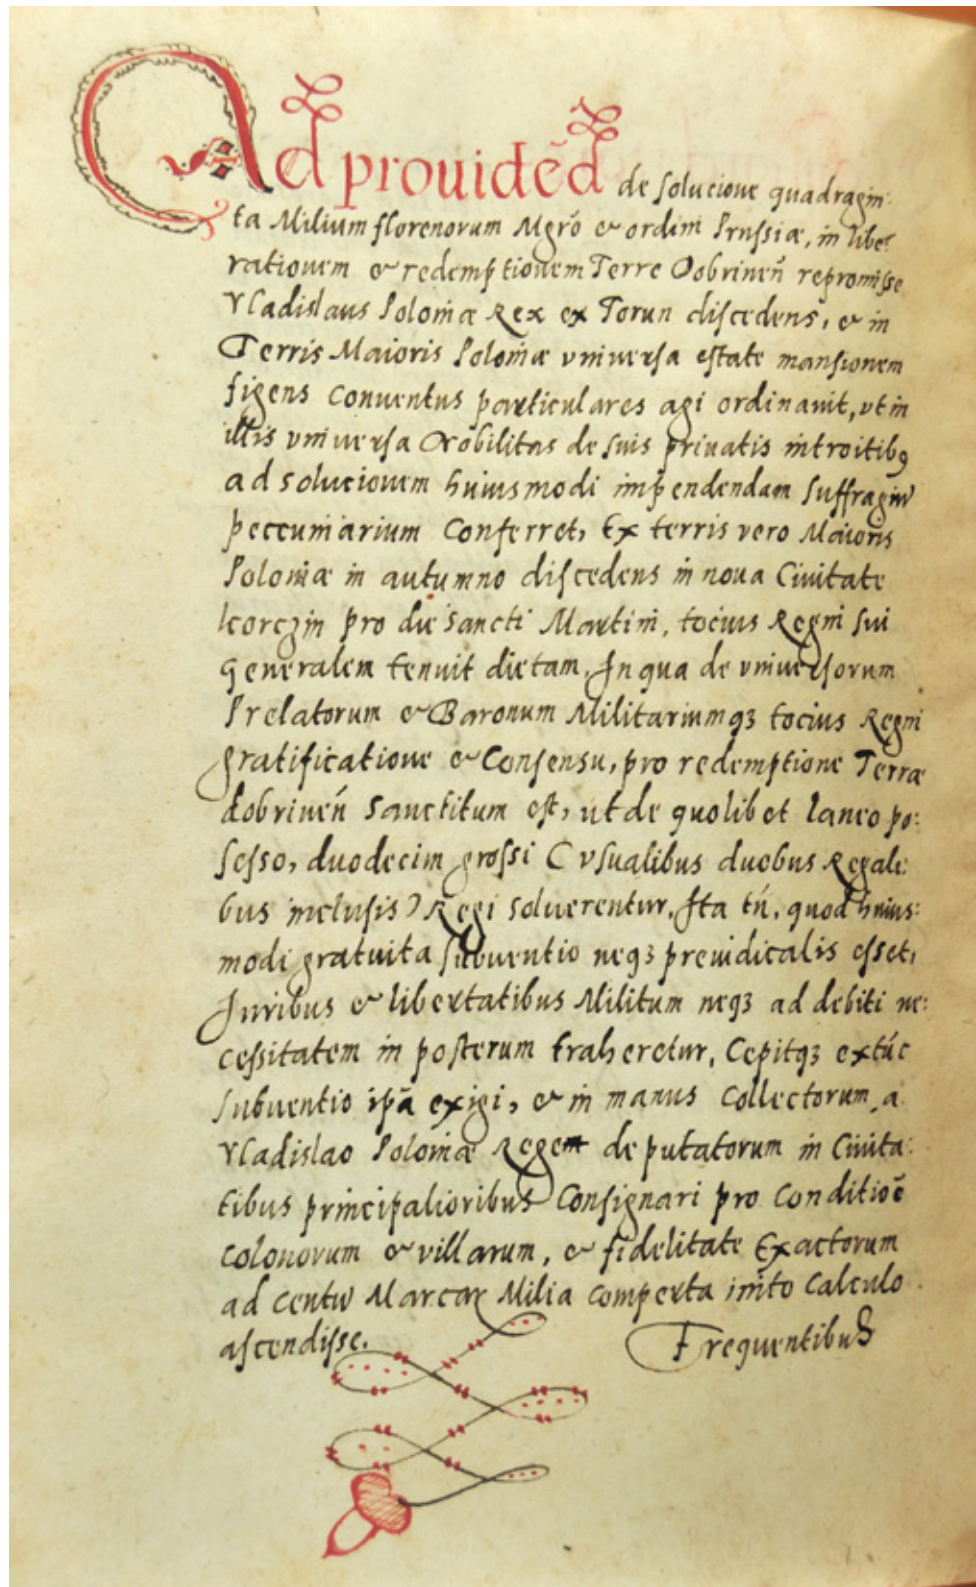 Ad prouidẽd de solucione quadragin:
ta Milium florenorum Mgrõ & ordini Prussiæ, in libe:
rationem & redemptionem Terre Dobrineñ repromisse
Vladislaus Poloniæ Rex ex Torun discedens, & in
Terris Maioris Poloniæ vniuersa estate mansionem
figens Conuentus particulares agi ordinauit, vt in
illis vniuersa Nobilitas de suis priuatis introitibꝯ
ad solucionem huiusmodi impendendam suffragiũ
peccuniarium Conferret, Ex terris vero Maioris
Poloniæ in autumno discedens in noua Ciuitate
korczin pro die Sancti Martini, tocius Regni sui
generalem tenuit dietam, In qua de vniuersorum
Prelatorum & Baronum Militariumqꝫ tocius Regni
gratificatione & Consensu, pro redemptione Terræ
dobrineñ Sanctitum est, ut de quolibet laneo po:
sesso, duodecim grossi ( vsualibus duobus Regali:
bus inclusis) Regi soluerentur, Ita tñ, quod huius:
modi gratuita subuentio neqꝫ preiudicalis esset,
Iuribus & libertatibus Militum neqꝫ ad debiti ne:
cessitatem in posterum traheretur, Cepitqꝫ extũc
subuentio ip̃a exigi, & in manus Collectorum, a
Vladislao Poloniæ Regem deputatorum in Ciuita:
tibus principalioribus Consignari pro Conditioẽ
Colonorum & villarum, & fidelitate Exactorum
ad Centũ Marcar Milia Comperta inito Calculo
ascendisse. Frequentibus